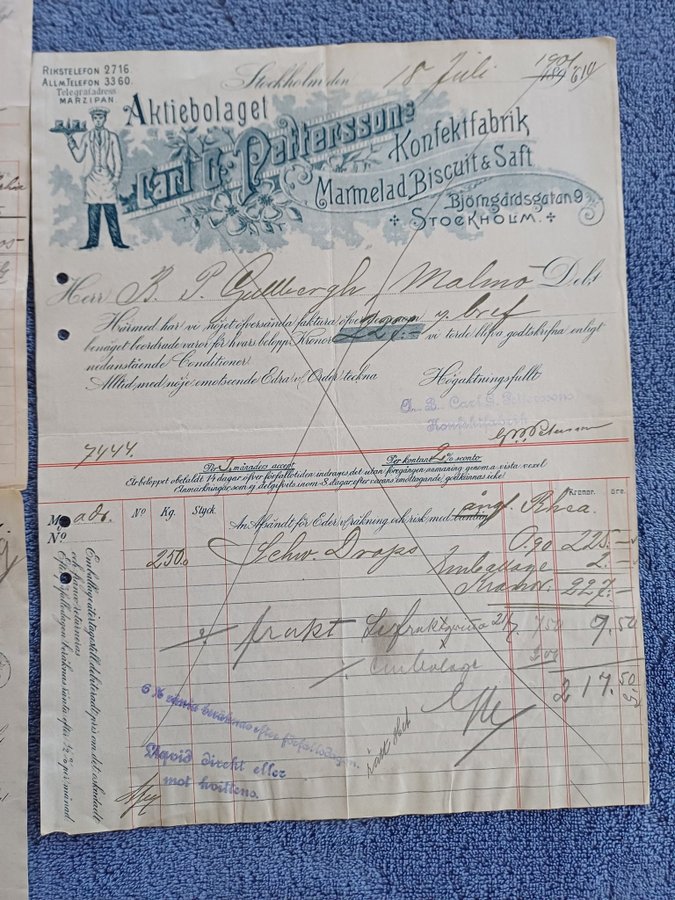 RIKSTELEFON 2716
ALLM. TELEFON 3360.
Telegrafadress
MARZIPAN
Stockholm den 18 Juli 1901
Aktiebolaget
Carl G. Petterssons
Konfektfabrik
Marmelad, Biscuit & Saft
Björngårdsgatan 9
STOCKHOLM.
Herr B. P. Gullbergh Malmö Debt
Härmed har vi nöjet öfversända faktura öfver pr bref
benäget beordrade varor för hvars belopp Kronor 227:- vi torde blifva godtskrifna enligt
nedanstående Conditioner
Alltid med nöje emotseende Edra v. Order teckna Högaktningsfullt
A. B. Carl G. Petterssons
Konfektfabrik
7444.
Per 3 månaders accept Per kontant 2% sconto
Är beloppet obetaldt 14 dagar öfver förfallotiden indrages det utan föregången anmaning genom a vista vexel
Anmärkningar som ej delgifvits inom 8 dagar efter varans emottagande, godkännas icke!
No Kg. Styck. Kronor. Öre.
M adr.
No
An Afsändt för Eder v. räkning och risk med ångf. Rhea.
250 Schw. Drops 0.90 225.-
Emballage 2.-
Kronor 227.-
frakt 21/7 7 50 7.50
Emballage 2 00
217.50
Emballage återtages till debiteradt pris om det oskadadt
och franco returneras.
Efter förfallodagen beräknas ränta efter ½% per månad.
6 % ränta beräknas efter förfallodagen.
Likvid direkt eller
mot kvittens.